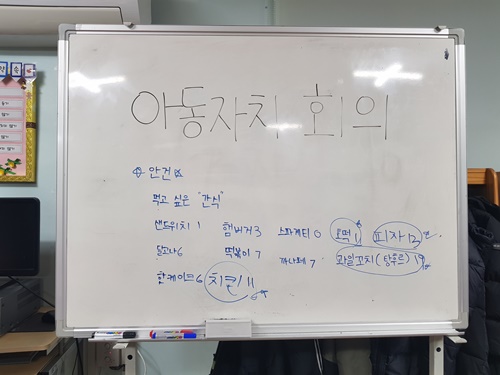 아동자치 회의
안건
먹고 싶은 "간식"
샌드위치 1 햄버거 3 스파게티 0 호떡 피자 12
달고나 6 떡볶이 7 까나페 7 과일꼬치(탕후루) 19
핫케이크 6 치킨 11